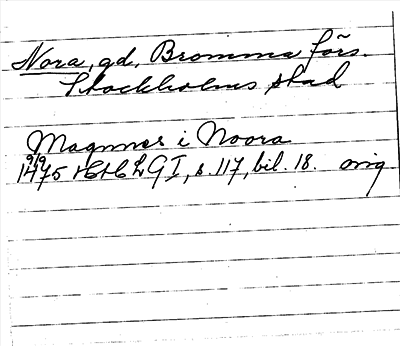 Nora, gd, Bromma förs.
Stockholms stad
Magnnes i Noora
9/9
1475 HSH LGI, s. 117, bil. 18. orig